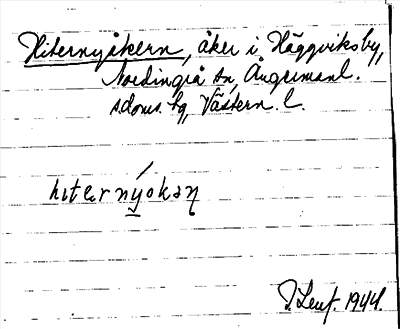 Hiternyåkern, åker i Häggviksby,
Nordingrå sn, Ångermanl.
s. doms. hg, Västern. l.
hiter nýokaɳ
D. Lenf. 1944.